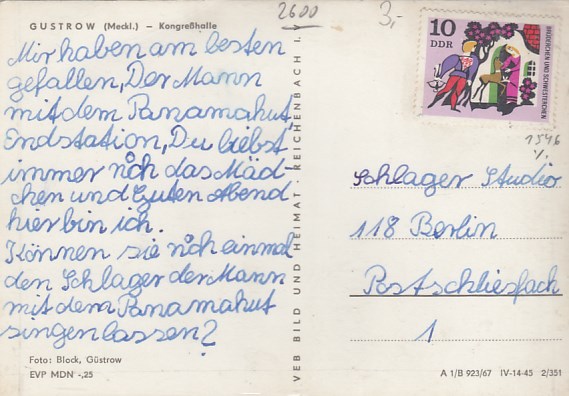 GÜSTROW (Meckl.) – Kongreßhalle
2600
3,-
10
DDR
BRÜDERCHEN UND SCHWESTERCHEN
1546
Mir haben am besten
gefallen, Der Mann
mit dem Panamahut,
Endstation, Du liebst
immer noch das Mäd-
chen und Guten Abend
hier bin ich.
Können sie noch einmal
den Schlager der Mann
mit dem Panamahut
singen lassen?
Foto: Block, Güstrow
EVP MDN -,25
VEB BILD UND HEIMAT · REICHENBACH i. V.
Schlager Studio
118 Berlin
Postschliesfach
1
A 1/B 923/67 IV-14-45 2/351